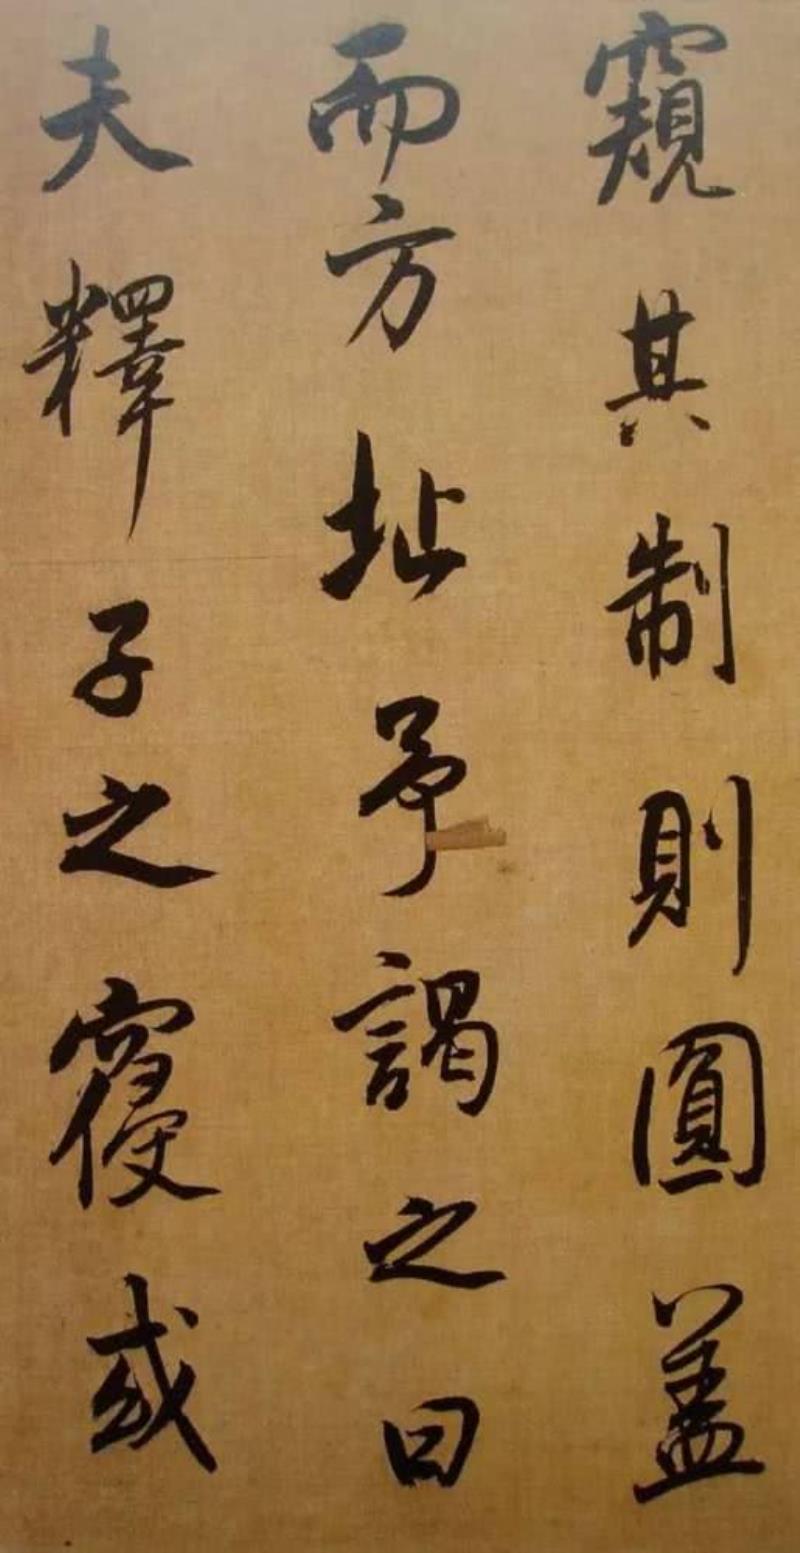 窺其制則圓盖
而方址予謁之曰
夫釋子之或